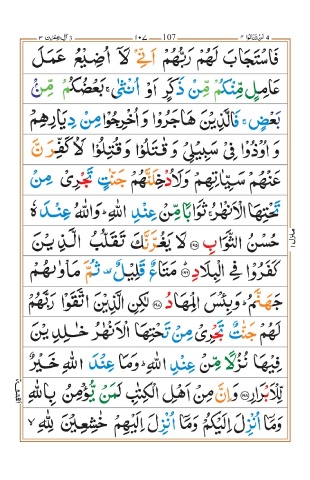 107
فَاسْتَجَابَ لَهُمْ رَبُّهُمْ اَنِّيْ لَاۤ اُضِيْعُ عَمَلَ
عَامِلٍ مِّنْكُمْ مِّنْ ذَكَرٍ اَوْ اُنْثٰى ۚ بَعْضُكُمْ مِّنْۢ
بَعْضٍ ۚ فَالَّذِيْنَ هَاجَرُوْا وَاُخْرِجُوْا مِنْ دِيَارِهِمْ
وَاُوْذُوْا فِيْ سَبِيْلِيْ وَقٰتَلُوْا وَقُتِلُوْا لَاُكَفِّرَنَّ
عَنْهُمْ سَيِّاٰتِهِمْ وَلَاُدْخِلَنَّهُمْ جَنّٰتٍ تَجْرِيْ مِنْ
تَحْتِهَا الْاَنْهٰرُ ۚ ثَوَابًا مِّنْ عِنْدِ اللّٰهِ ؕ وَاللّٰهُ عِنْدَهٗ
حُسْنُ الثَّوَابِ ۝۱۹۵ لَا يَغُرَّنَّكَ تَقَلُّبُ الَّذِيْنَ
كَفَرُوْا فِي الْبِلَادِ ۝۱۹۶ مَتَاعٌ قَلِيْلٌ ۫ ثُمَّ مَاْوٰىهُمْ
جَهَنَّمُ ؕ وَبِئْسَ الْمِهَادُ ۝۱۹۷ لٰكِنِ الَّذِيْنَ اتَّقَوْا رَبَّهُمْ
لَهُمْ جَنّٰتٌ تَجْرِيْ مِنْ تَحْتِهَا الْاَنْهٰرُ خٰلِدِيْنَ
فِيْهَا نُزُلًا مِّنْ عِنْدِ اللّٰهِ ؕ وَمَا عِنْدَ اللّٰهِ خَيْرٌ
لِّلْاَبْرَارِ ۝۱۹۸ وَاِنَّ مِنْ اَهْلِ الْكِتٰبِ لَمَنْ يُّؤْمِنُ بِاللّٰهِ
وَمَاۤ اُنْزِلَ اِلَيْكُمْ وَمَاۤ اُنْزِلَ اِلَيْهِمْ خٰشِعِيْنَ لِلّٰهِ ۙ